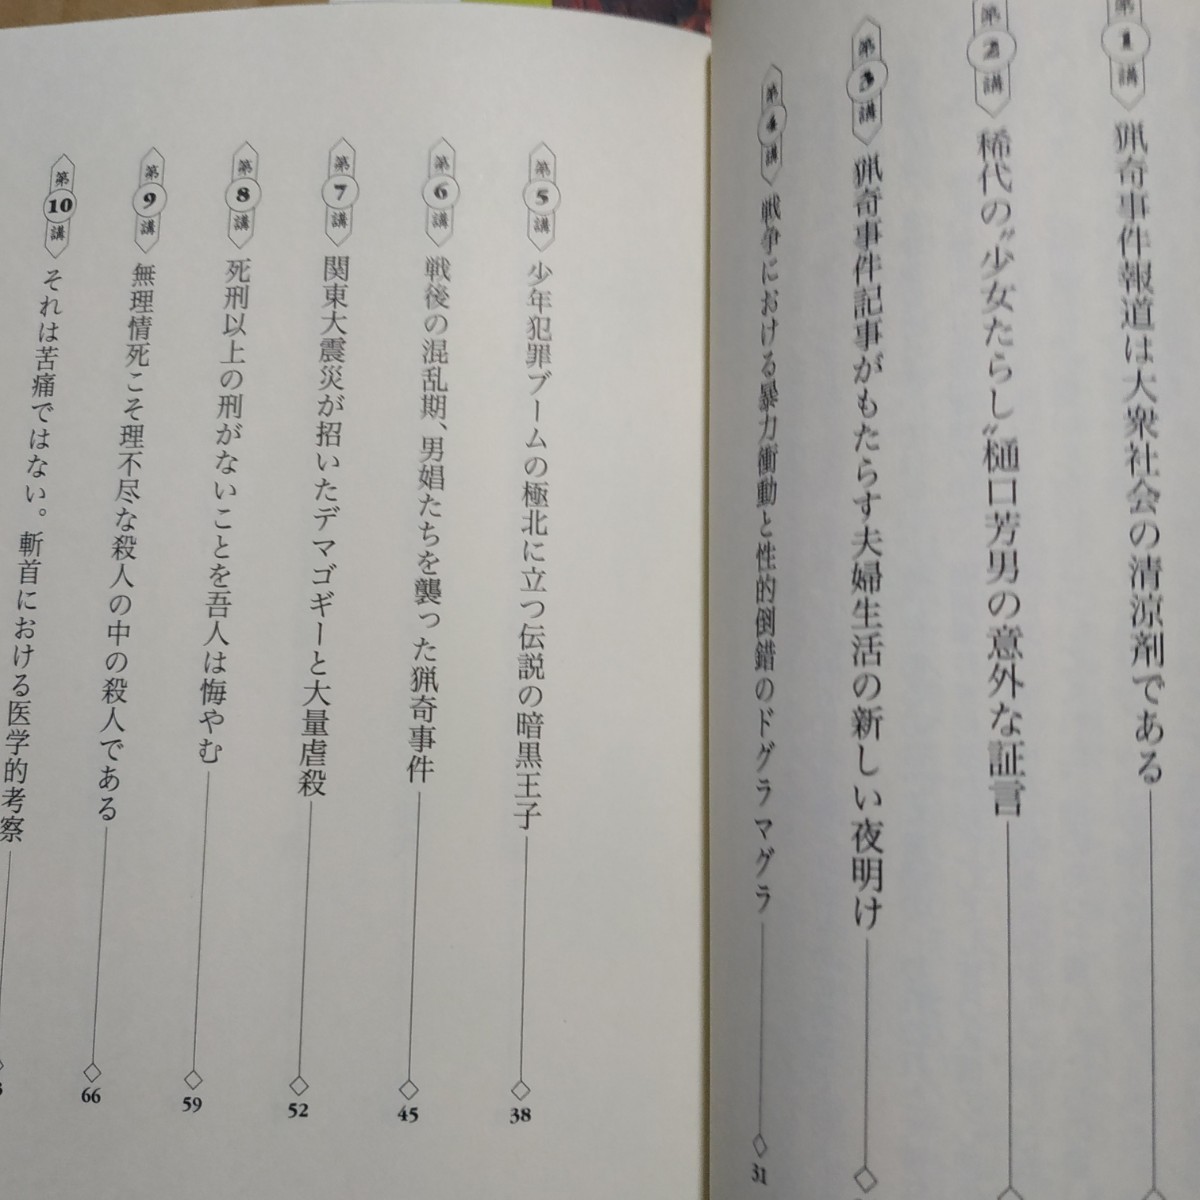 第1講 猟奇事件報道は大衆社会の清涼剤である
第2講 稀代の〝少女たらし〟樋口芳男の意外な証言
第3講 猟奇事件記事がもたらす夫婦生活の新しい夜明け
第4講 戦争における暴力衝動と性的倒錯のドグラマグラ 31
第5講 少年犯罪ブームの極北に立つ伝説の暗黒王子 38
第6講 戦後の混乱期、男娼たちを襲った猟奇事件 45
第7講 関東大震災が招いたデマゴギーと大量虐殺 52
第8講 死刑以上の刑がないことを吾人は悔やむ 59
第9講 無理情死こそ理不尽な殺人の中の殺人である 66
第10講 それは苦痛ではない。斬首における医学的考察